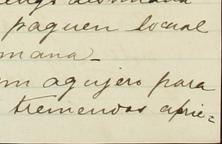 paguen lo cual
mana_
un agujero para
tremendos aprie=